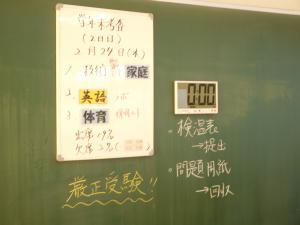 学年末考査
(2日目)
2月29日(木)
1. 技術 家庭
2. 英語
3. 体育
出席 19名
欠席 2名(
厳正受験!!
0:00
・検温表
→提出
・問題用紙
→回収